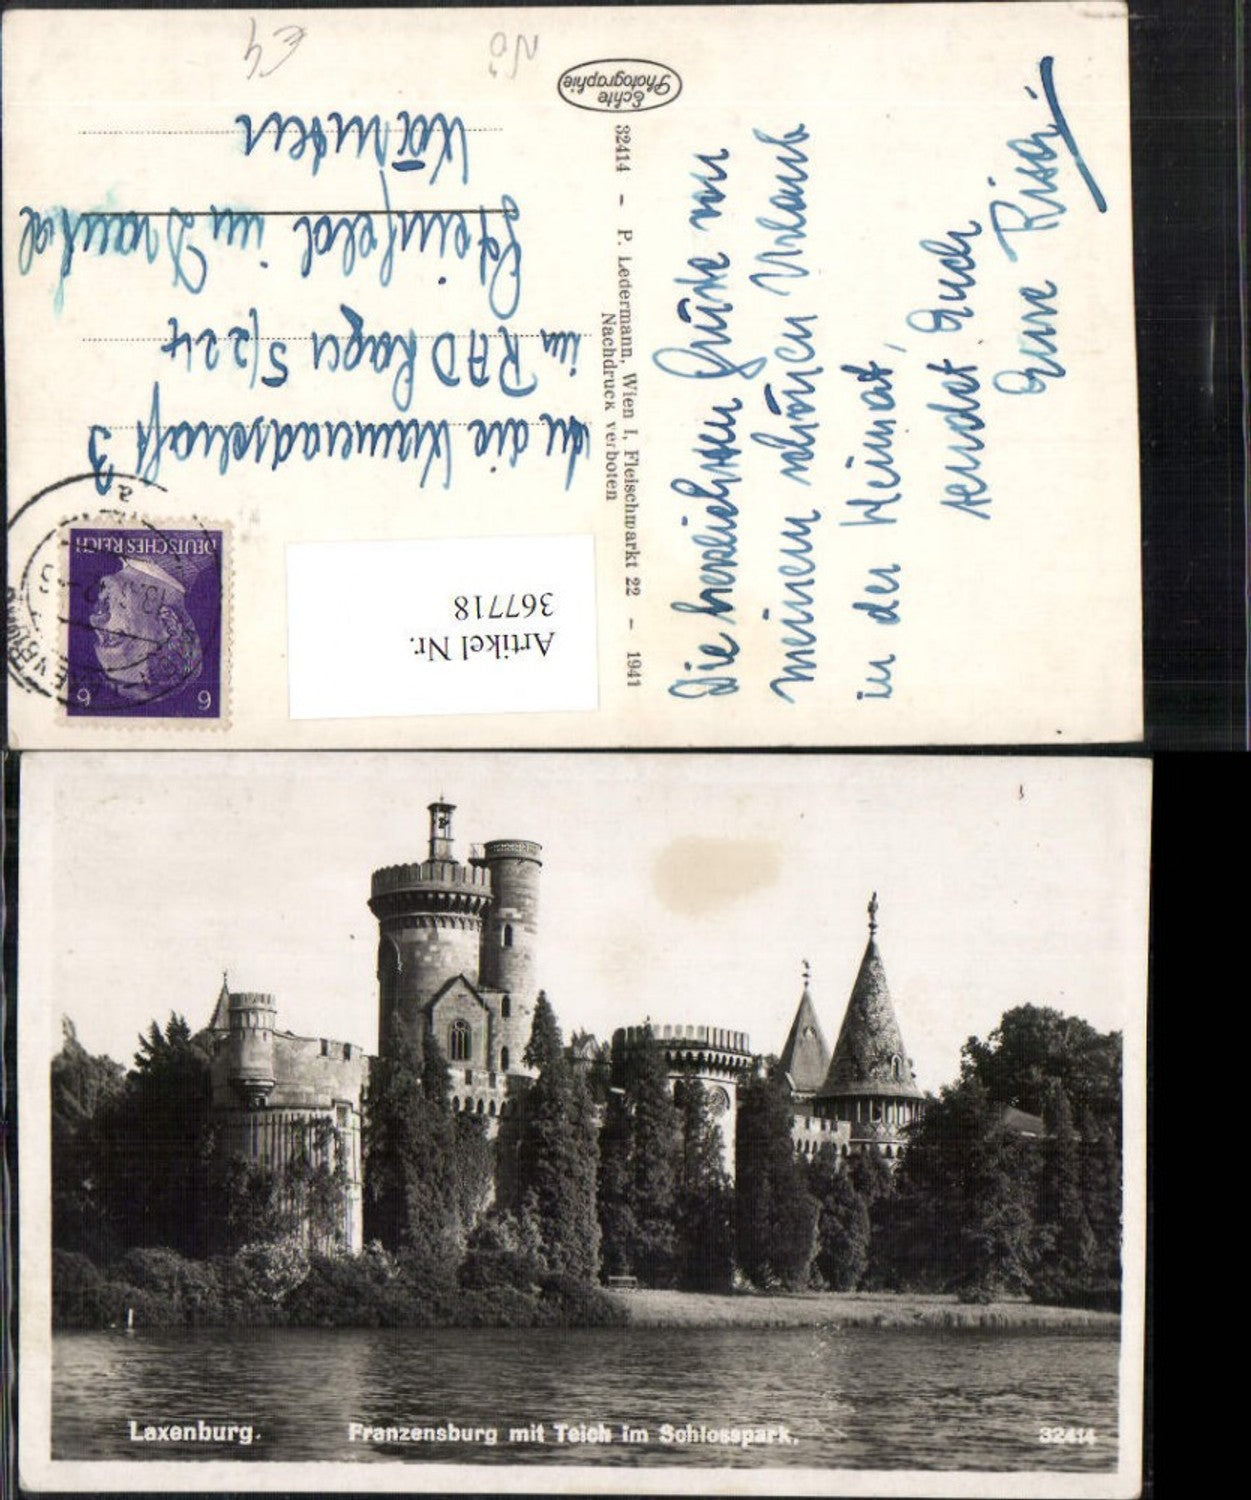 Echte
Photographie
32414 - P. Ledermann, Wien I, Fleischmarkt 22 - 1941
Nachdruck verboten
Die herzlichsten Grüße von
meinem schönen Urlaub
in der Heimat,
sendet Euch
Eure Risa.
An die Kameradschaft 3
im RAD Lager 5/224
Steinfeld im Drautal
Kärnten
DEUTSCHES REICH
6 6
Artikel Nr.
367718
NÖ
€4
Laxenburg. Franzensburg mit Teich im Schlosspark. 32414